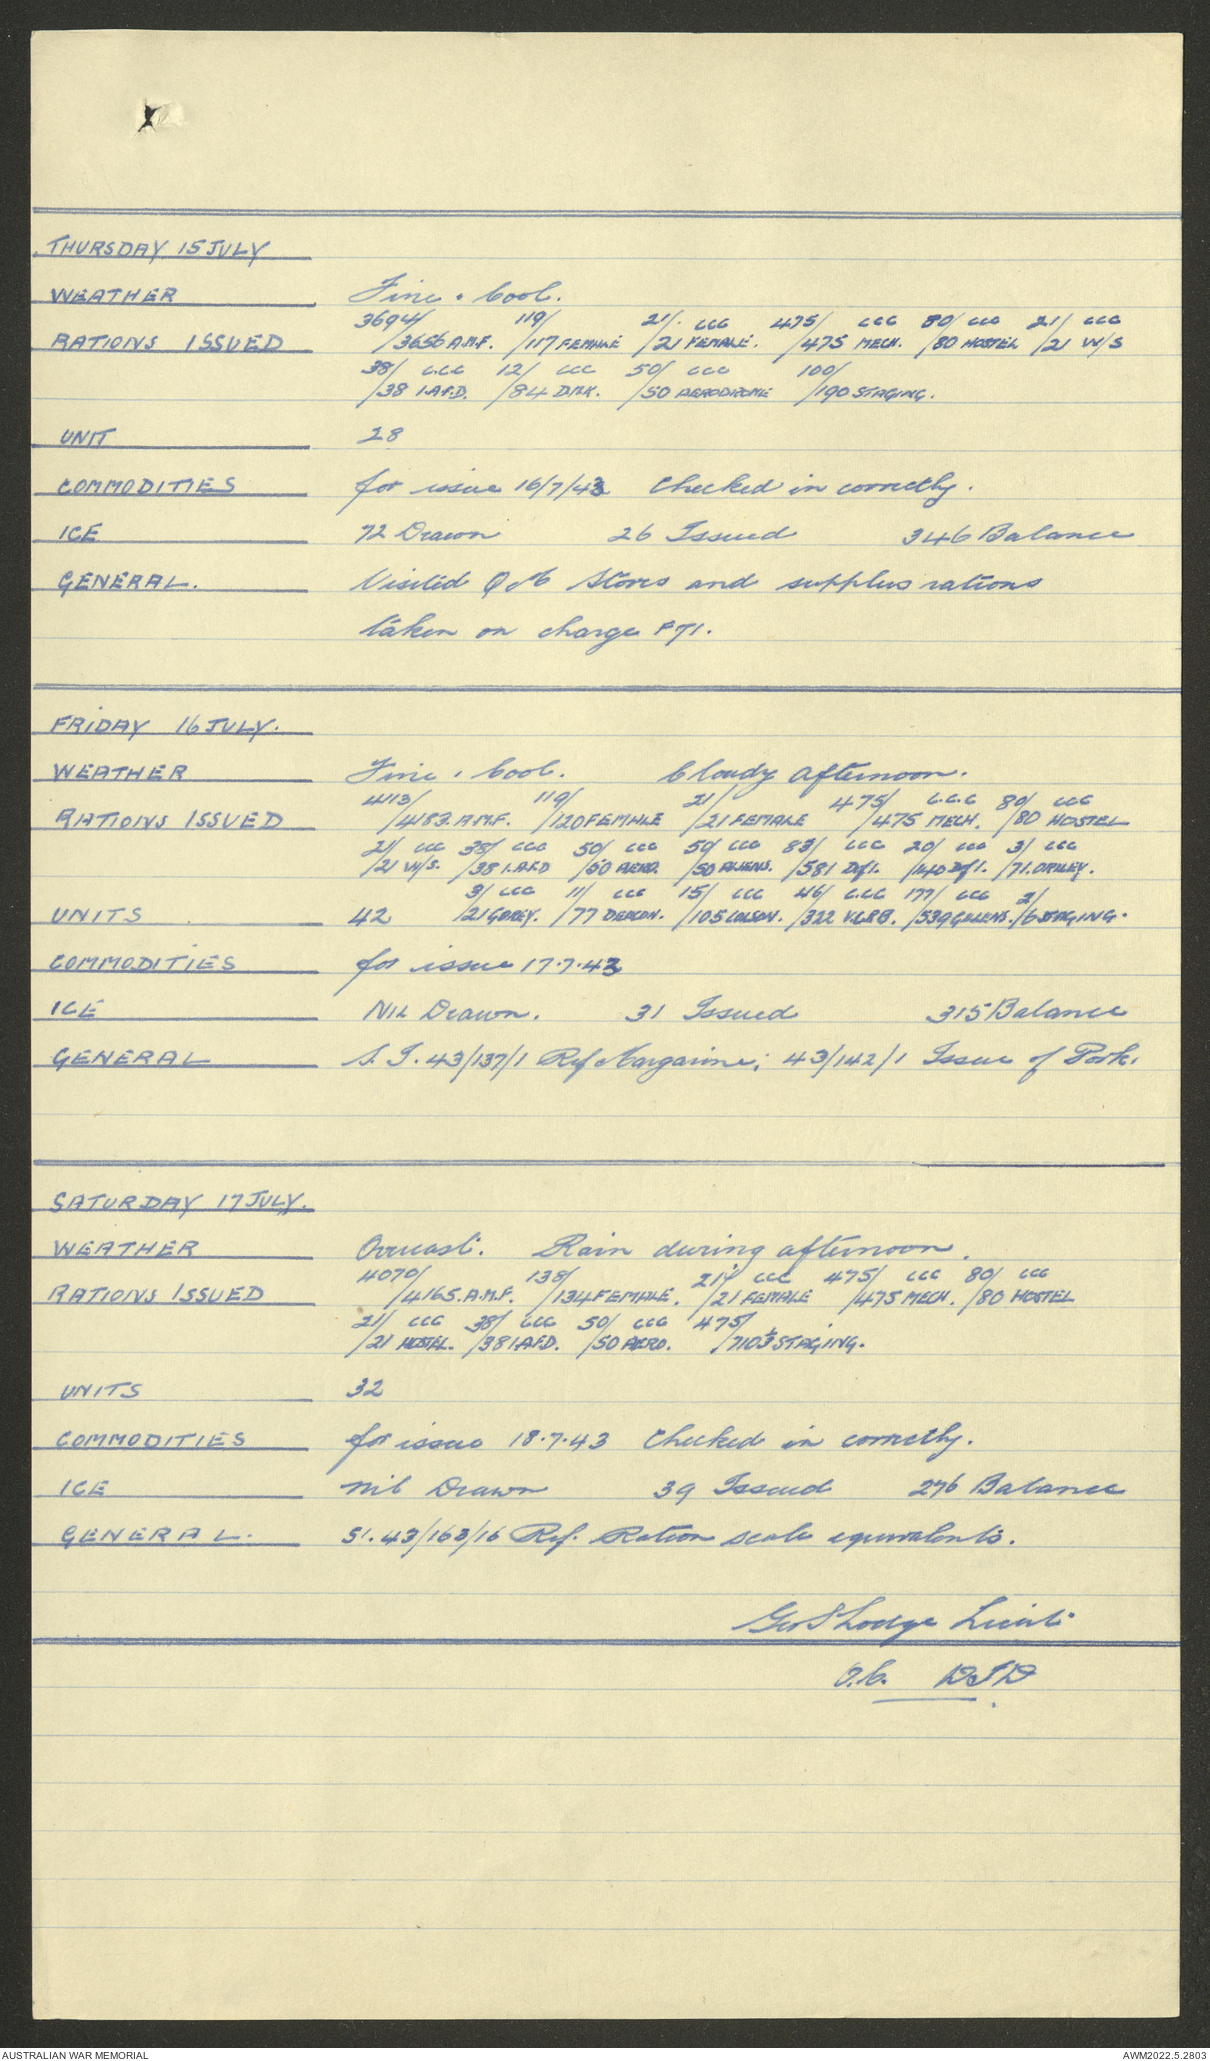 THURSDAY 15 JULY
WEATHER Fine & Cool.
3694/ 119/ 21/. CCC 475/ CCC 80/ CCC 21/ CCC
RATIONS ISSUED /3656 A.M.F. /117 FEMALE /21 FEMALE. /475 MECH. /80 HOSTEL /21 W/S
38/ C.CC 12/ CCC 50/ CCC 100/
/38 I.A.F.D. /84 DMK. /50 AERODROME /190 STAGING.
UNIT 28
COMMODITIES for issue 16/7/43 Checked in correctly.
ICE 72 Drawn 26 Issued 346 Balance
GENERAL. Visited Q Stores and supplus rations
taken on charge P71.
FRIDAY 16 JULY.
WEATHER Fine & Cool. Cloudy afternoon.
4113/ 119/ 21/ 475/ C.C.C 80/ CCC
RATIONS ISSUED /4183 A.M.F. /120 FEMALE /21 FEMALE /475 MECH. /80 HOSTEL
21/ CCC 38/ CCC 50/ CCC 50/ CCC 83/ CCC 20/ CCC 3/ CCC
/21 W/S. /38 I.A.F.D /50 AERO. /50 ALIENS. /581 /140 /71.
3/ CCC 11/ CCC 15/ CCC 46/ C.CC 177/ CCC 2/
UNITS 42 /21 GOREY. /77 DEACON. /105 COLSON. /322 /539 /6 STAGING.
COMMODITIES for issue 17.7.43
ICE NIL Drawn. 31 Issued 315 Balance
GENERAL S.I. 43/137/1 Ref Margarine; 43/142/1 Issue of Pork.
SATURDAY 17 JULY.
WEATHER Overcast. Rain during afternoon.
4070/ 138/ 21/ CCC 475/ CCC 80/ CCC
RATIONS ISSUED /4165. A.M.F. /134 FEMALE. /21 FEMALE /475 MECH. /80 HOSTEL
21/ CCC 38/ CCC 50/ CCC 475/
/21 HOSTEL. /38 I.A.F.D. /50 AERO. /710⅓ STAGING.
UNITS 32
COMMODITIES for issue 18.7.43 Checked in correctly.
ICE Nil Drawn 39 Issued 276 Balance
GENERAL. S1. 43/163/16 Ref. Ration scale equivalents.
Geo S Lodge Lieut.
O.C. DID
AUSTRALIAN WAR MEMORIAL AWM2022.5.2803